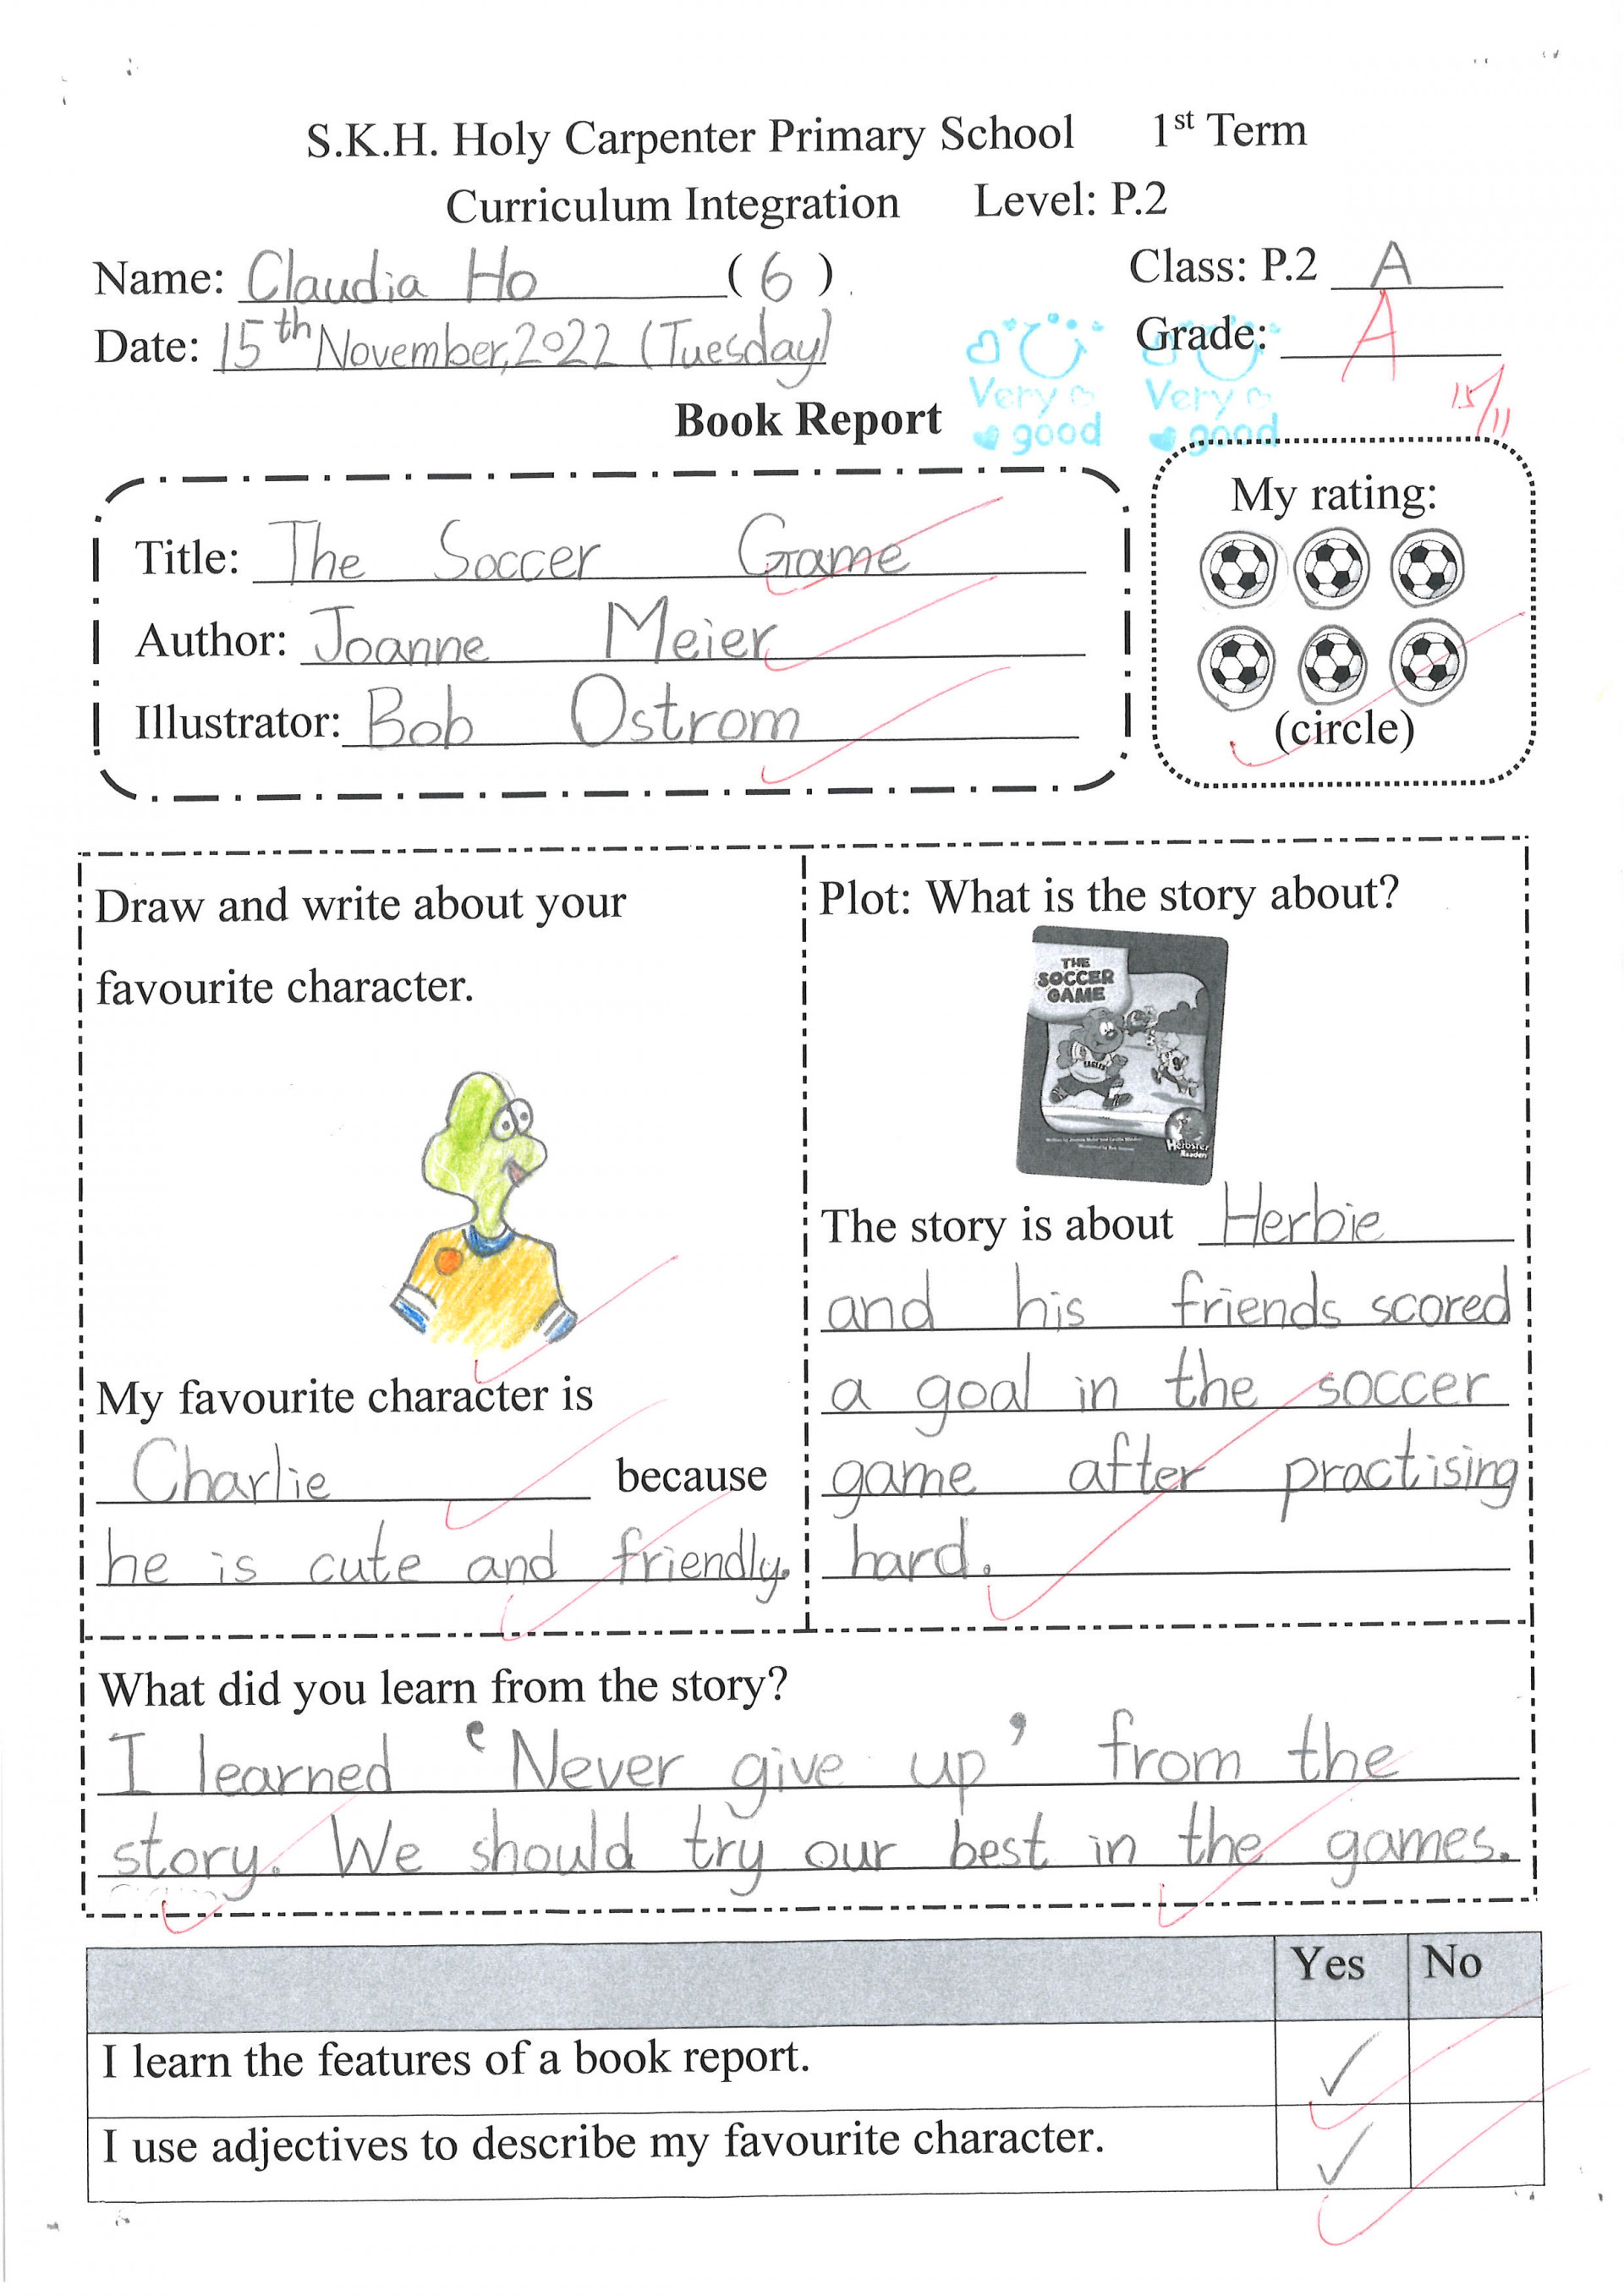 S.K.H. Holy Carpenter Primary School 1st Term
Curriculum Integration Level: P.2
Name: Claudia Ho (6) Class: P.2 A
Date: 15th November, 2022 (Tuesday) Grade: A
Very good Very good
15/11
Book Report
Title: The Soccer Game
Author: Joanne Meier
Illustrator: Bob Ostrom
My rating:
(circle)
Draw and write about your
favourite character.
My favourite character is
Charlie because
he is cute and friendly.
Plot: What is the story about?
THE
SOCCER
GAME
EAGLES
9
Herbster
Readers
The story is about Herbie
and his friends scored
a goal in the soccer
game after practising
hard.
What did you learn from the story?
I learned 'Never give up' from the
story. We should try our best in the games.
Yes No
I learn the features of a book report. ✓
I use adjectives to describe my favourite character. ✓